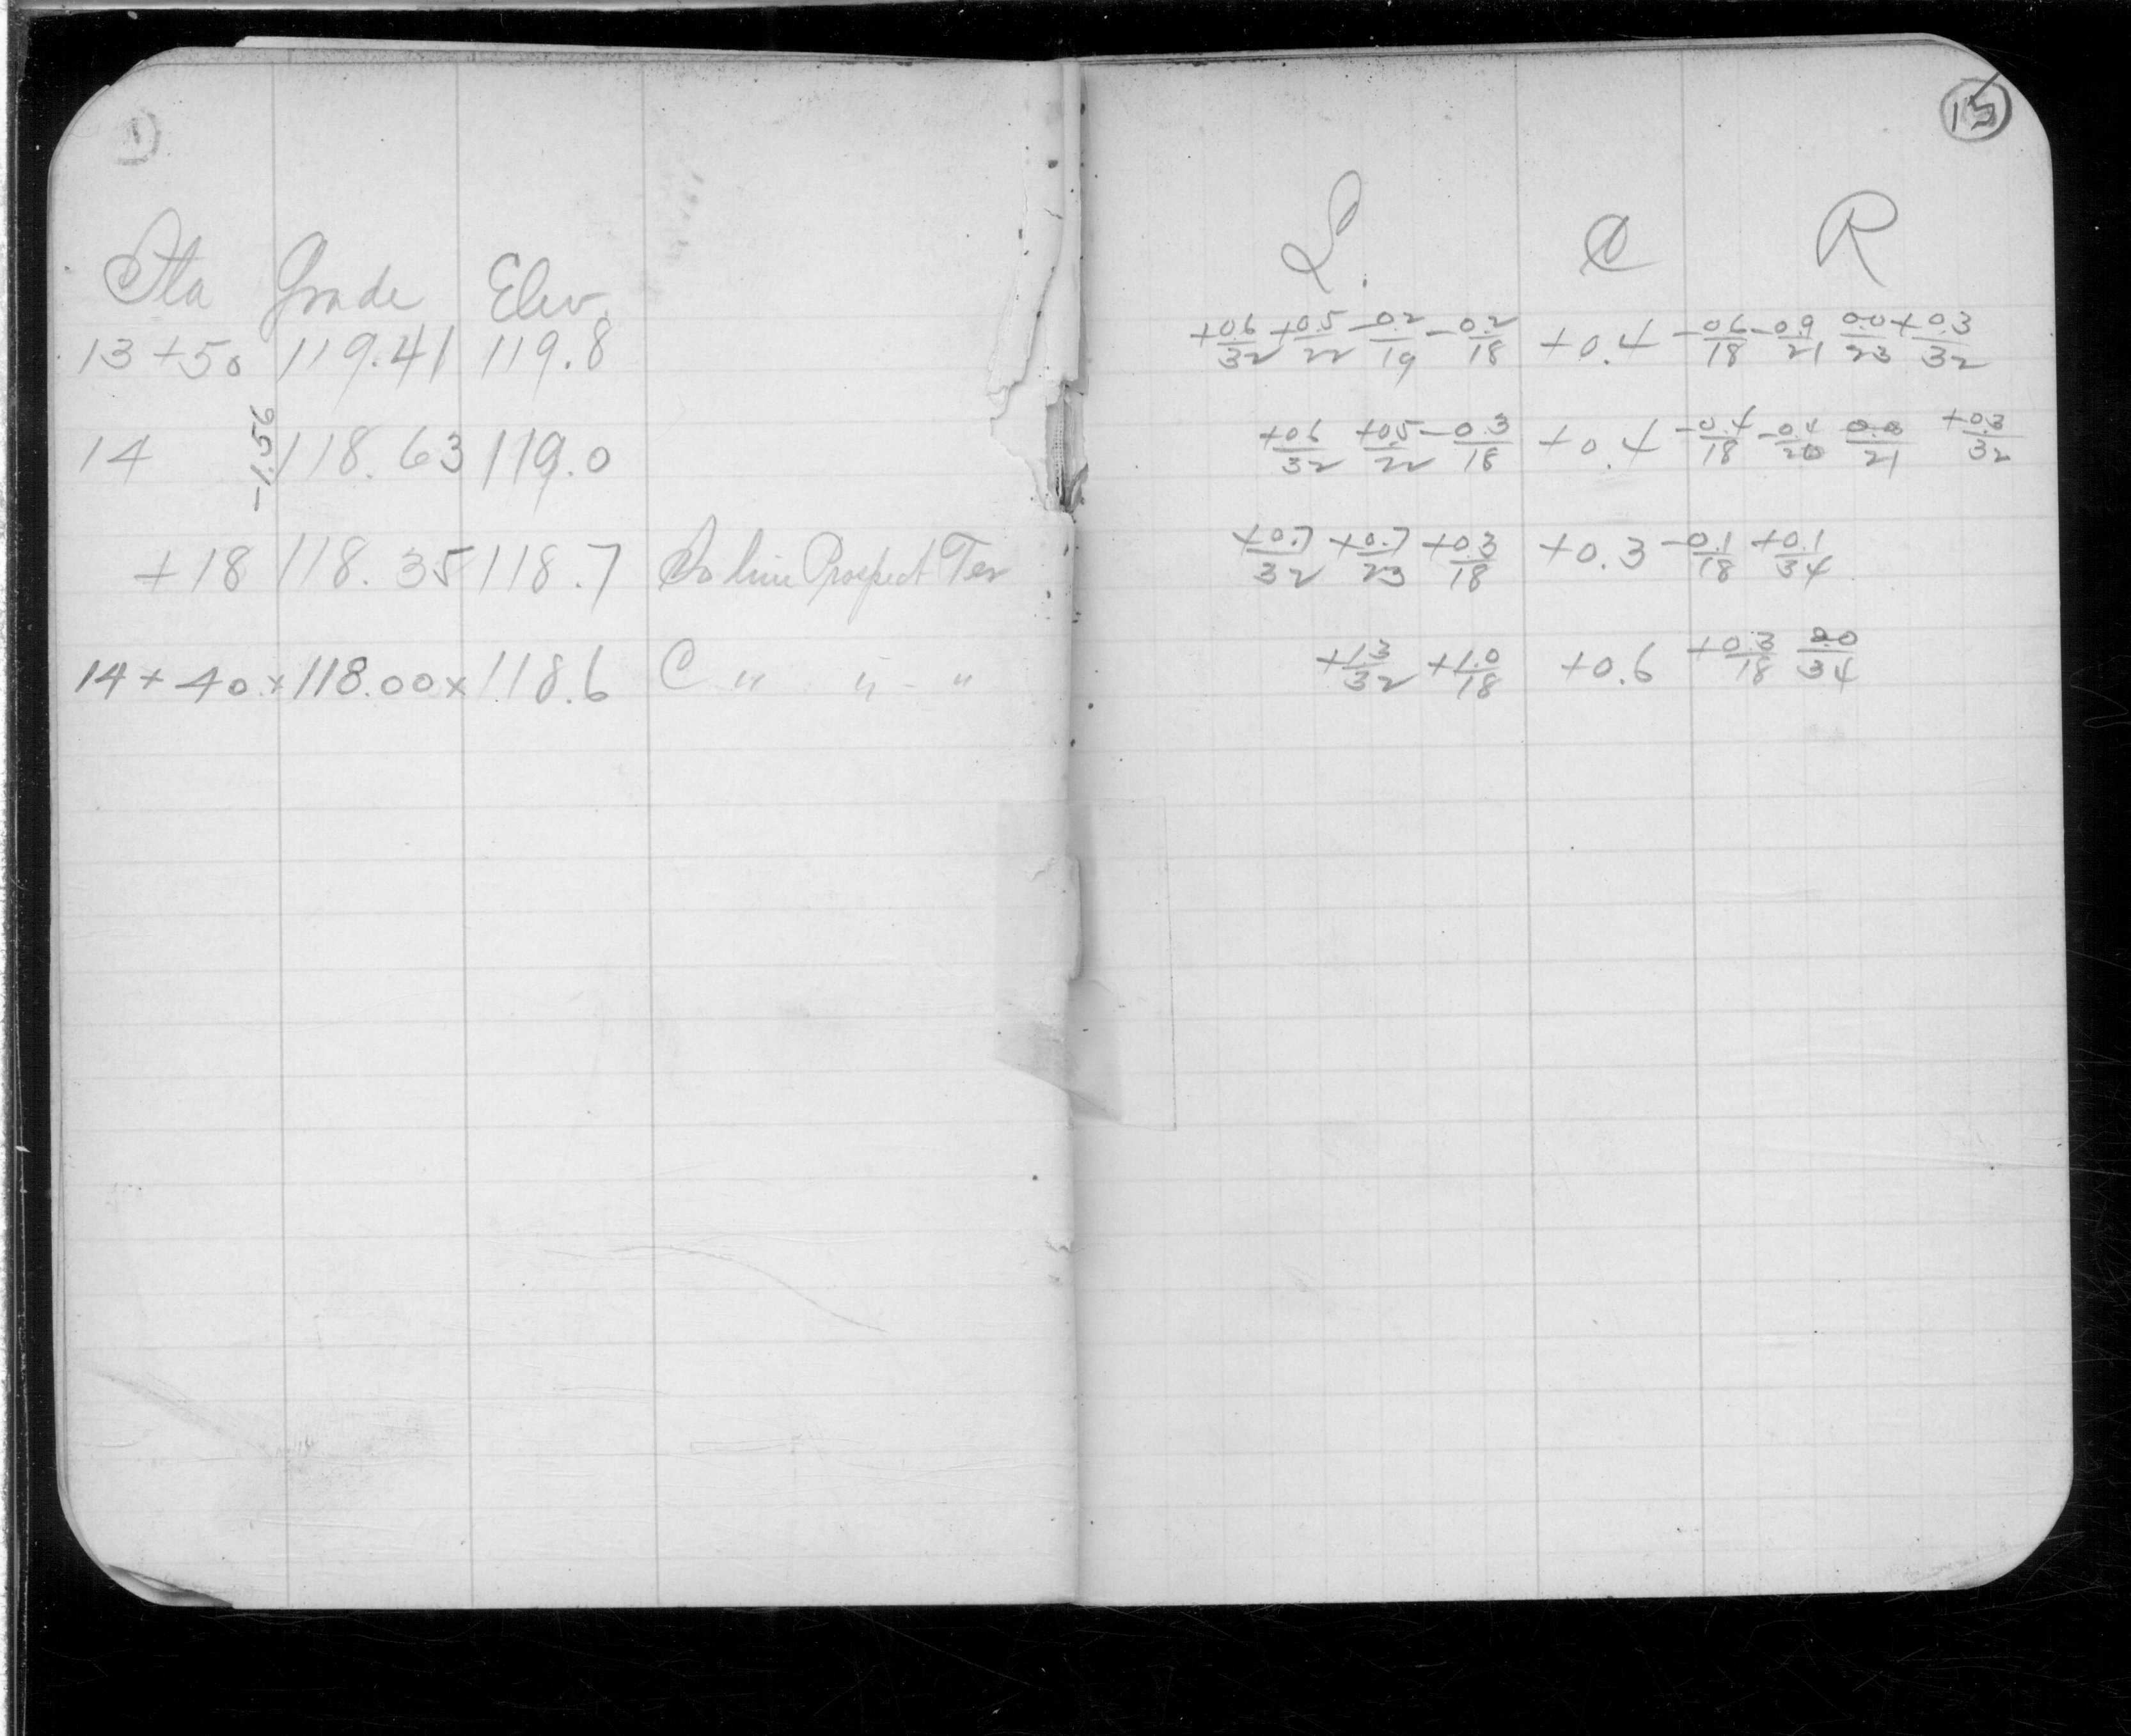 15
Sta Grade Elev. L. C R
13+50 119.41 119.8 +0.6/32 +0.5/22 -0.2/19 -0.2/18 +0.4 -0.6/18 -0.9/21 0.0/23 +0.3/32
-1.56
14 118.63 119.0 +0.6/32 +0.5/22 -0.3/18 +0.4 -0.4/18 -0.4/20 0.0/21 +0.3/32
+18 118.35 118.7 So line Prospect Ter +0.7/32 +0.7/23 +0.3/18 +0.3 -0.1/18 +0.1/34
14+40 x 118.00 x 118.6 C " " - " +1.3/32 +1.0/18 +0.6 +0.3/18 0.0/34